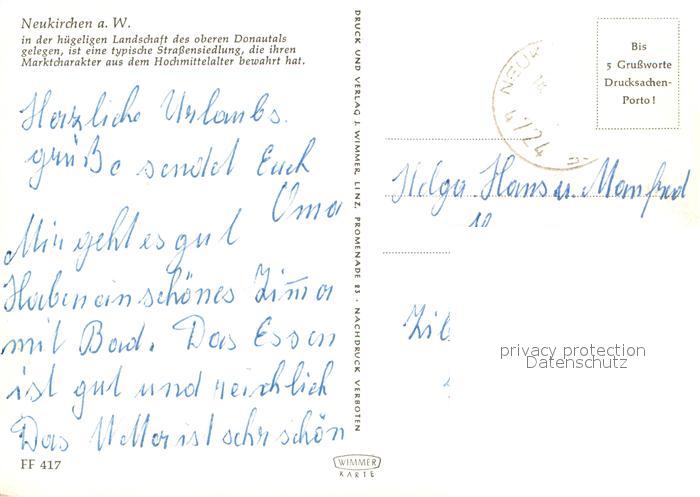 Neukirchen a. W.
in der hügeligen Landschaft des oberen Donautals
gelegen, ist eine typische Straßensiedlung, die ihren
Marktcharakter aus dem Hochmittelalter bewahrt hat.
Herzliche Urlaubs.
grüße sendet Euch
Oma
Mir geht es gut
Haben ein schönes Zim̅er
mit Bad. Das Essen
ist gut und reichlich
Das Wetter ist sehr schön
FF 417
DRUCK UND VERLAG J. WIMMER, LINZ, PROMENADE 23 · NACHDRUCK VERBOTEN
WIMMER
KARTE
4724
Bis
5 Grußworte
Drucksachen-
Porto!
Helga Hans u. Manfred
privacy protection
Datenschutz